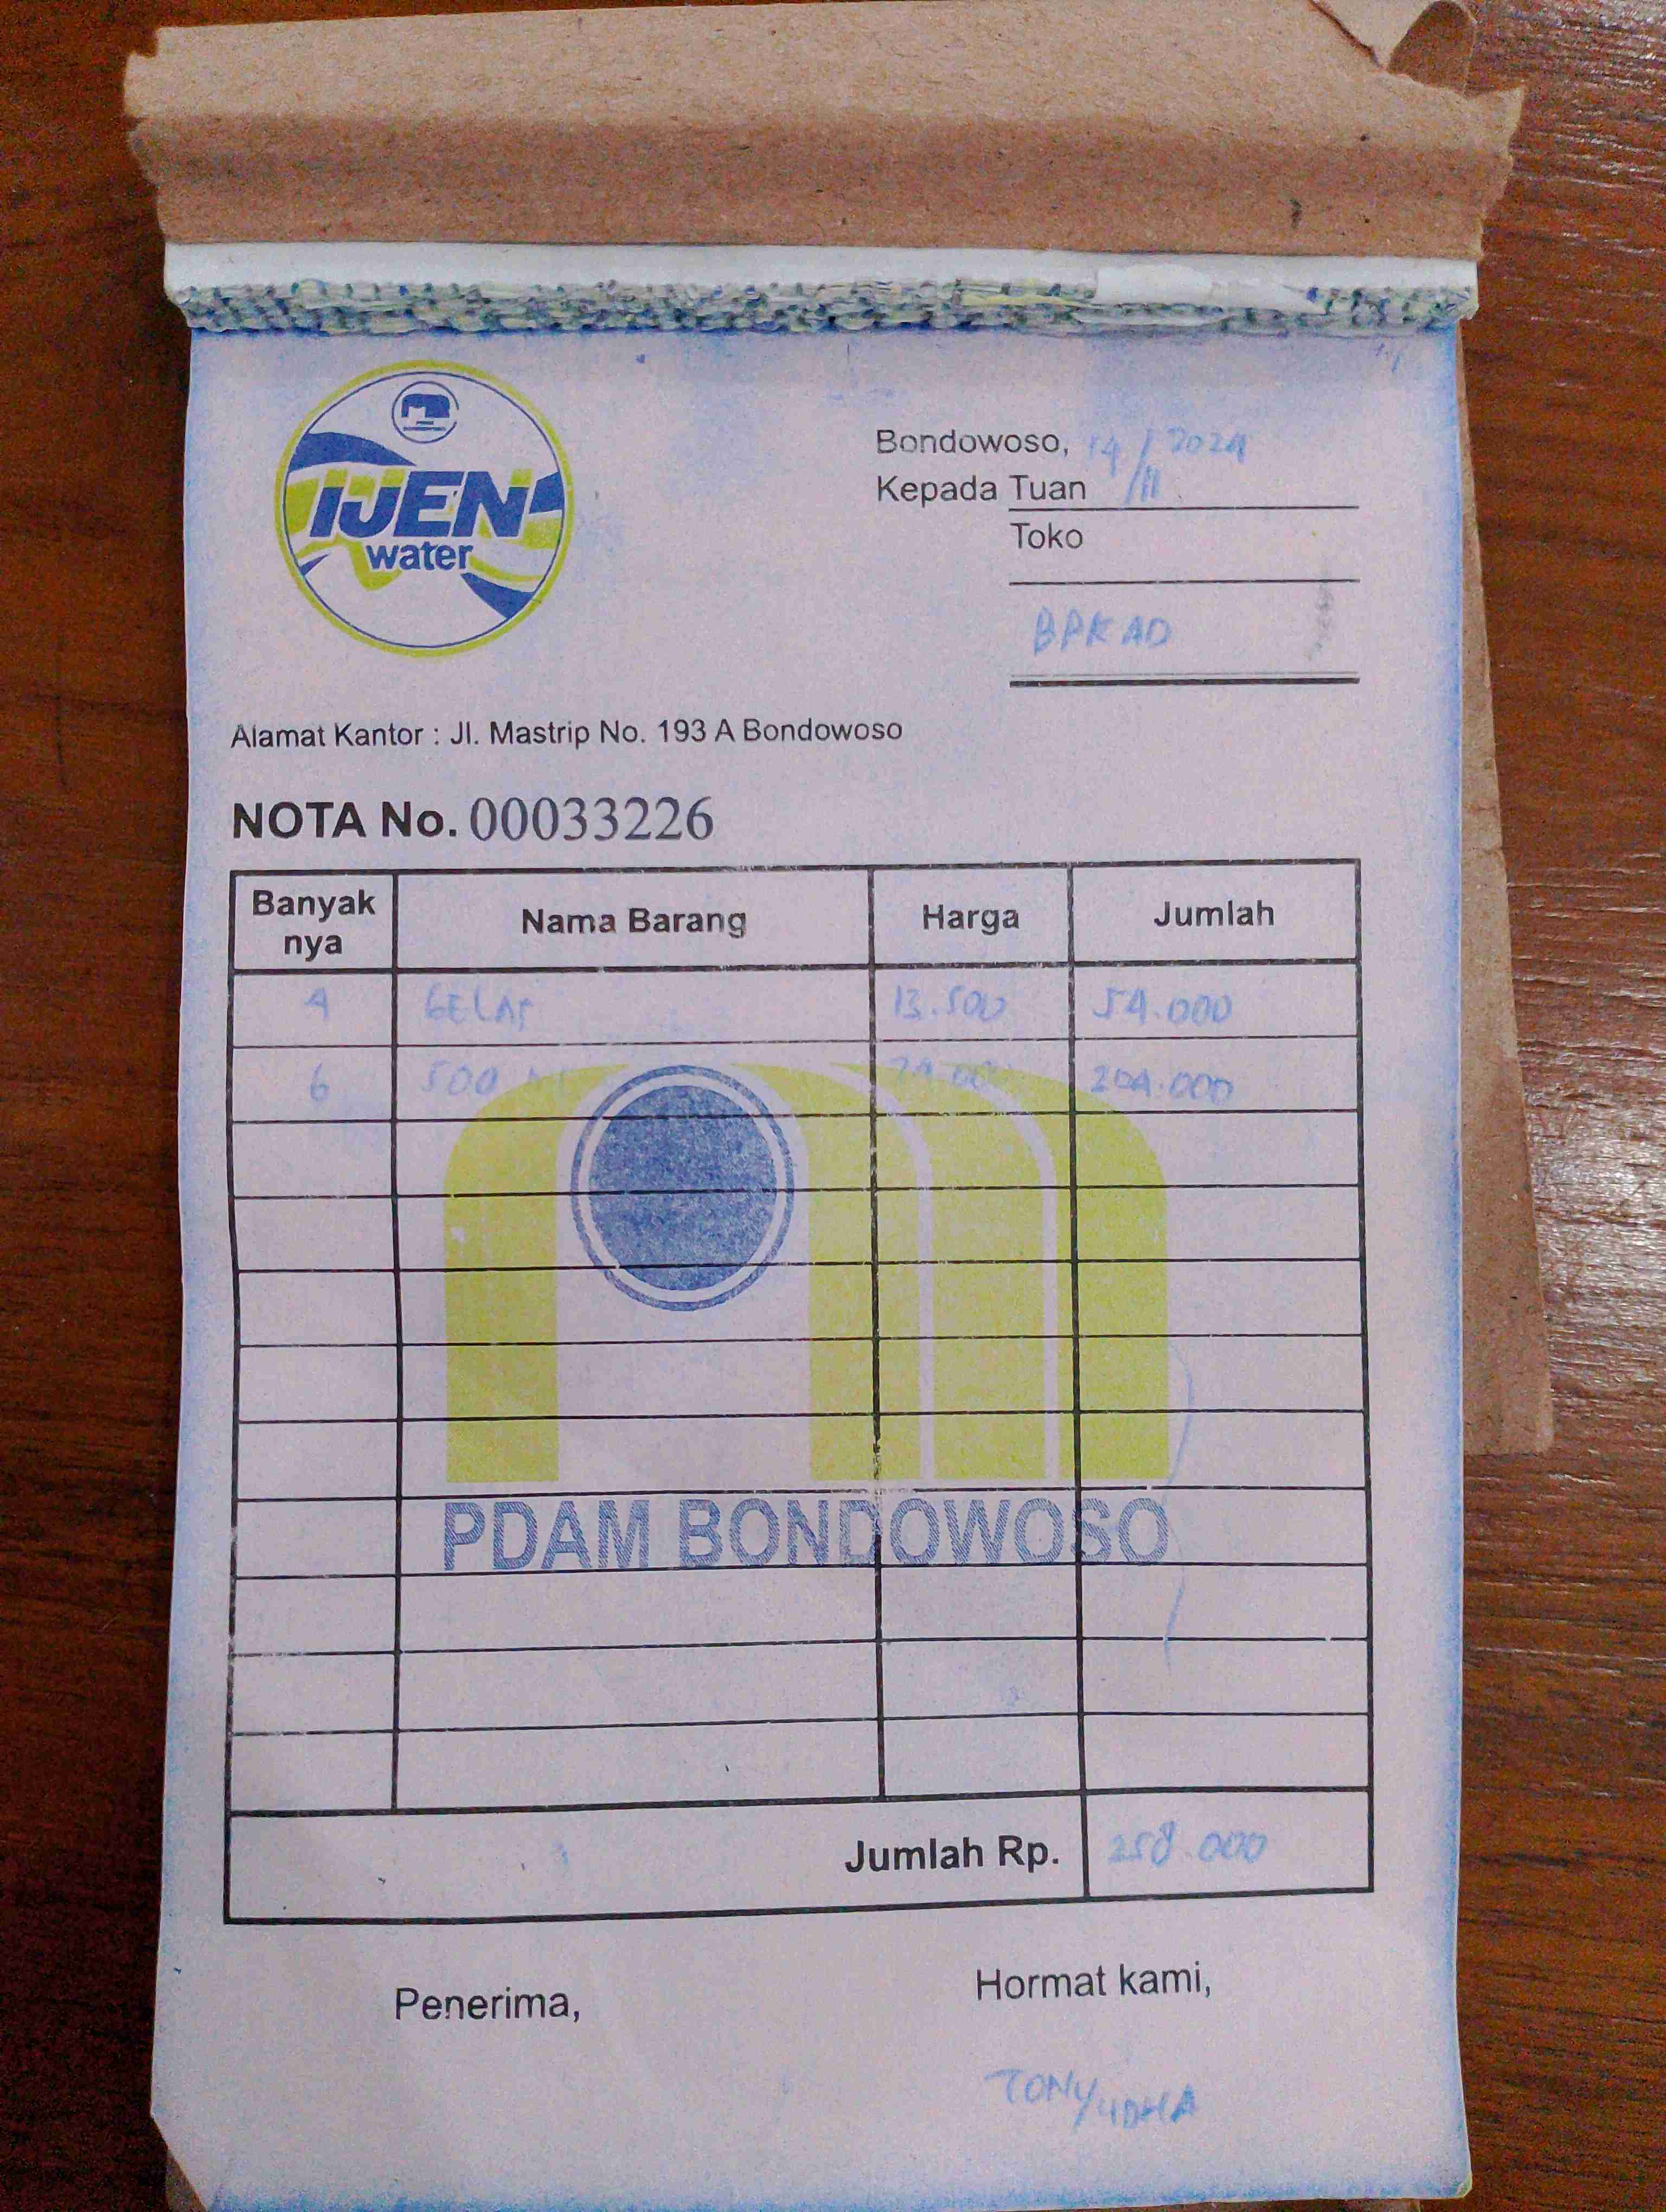 IJEN
water
Bondowoso, 14/11 2024
Kepada Tuan
Toko
BPKAD
Alamat Kantor : Jl. Mastrip No. 193 A Bondowoso
NOTA No. 00033226
Banyak nya Nama Barang Harga Jumlah
4 GELAS 13.500 54.000
6 500 204.000
PDAM BONDOWOSO
Jumlah Rp. 258.000
Penerima, Hormat kami,
TONY/UDHA